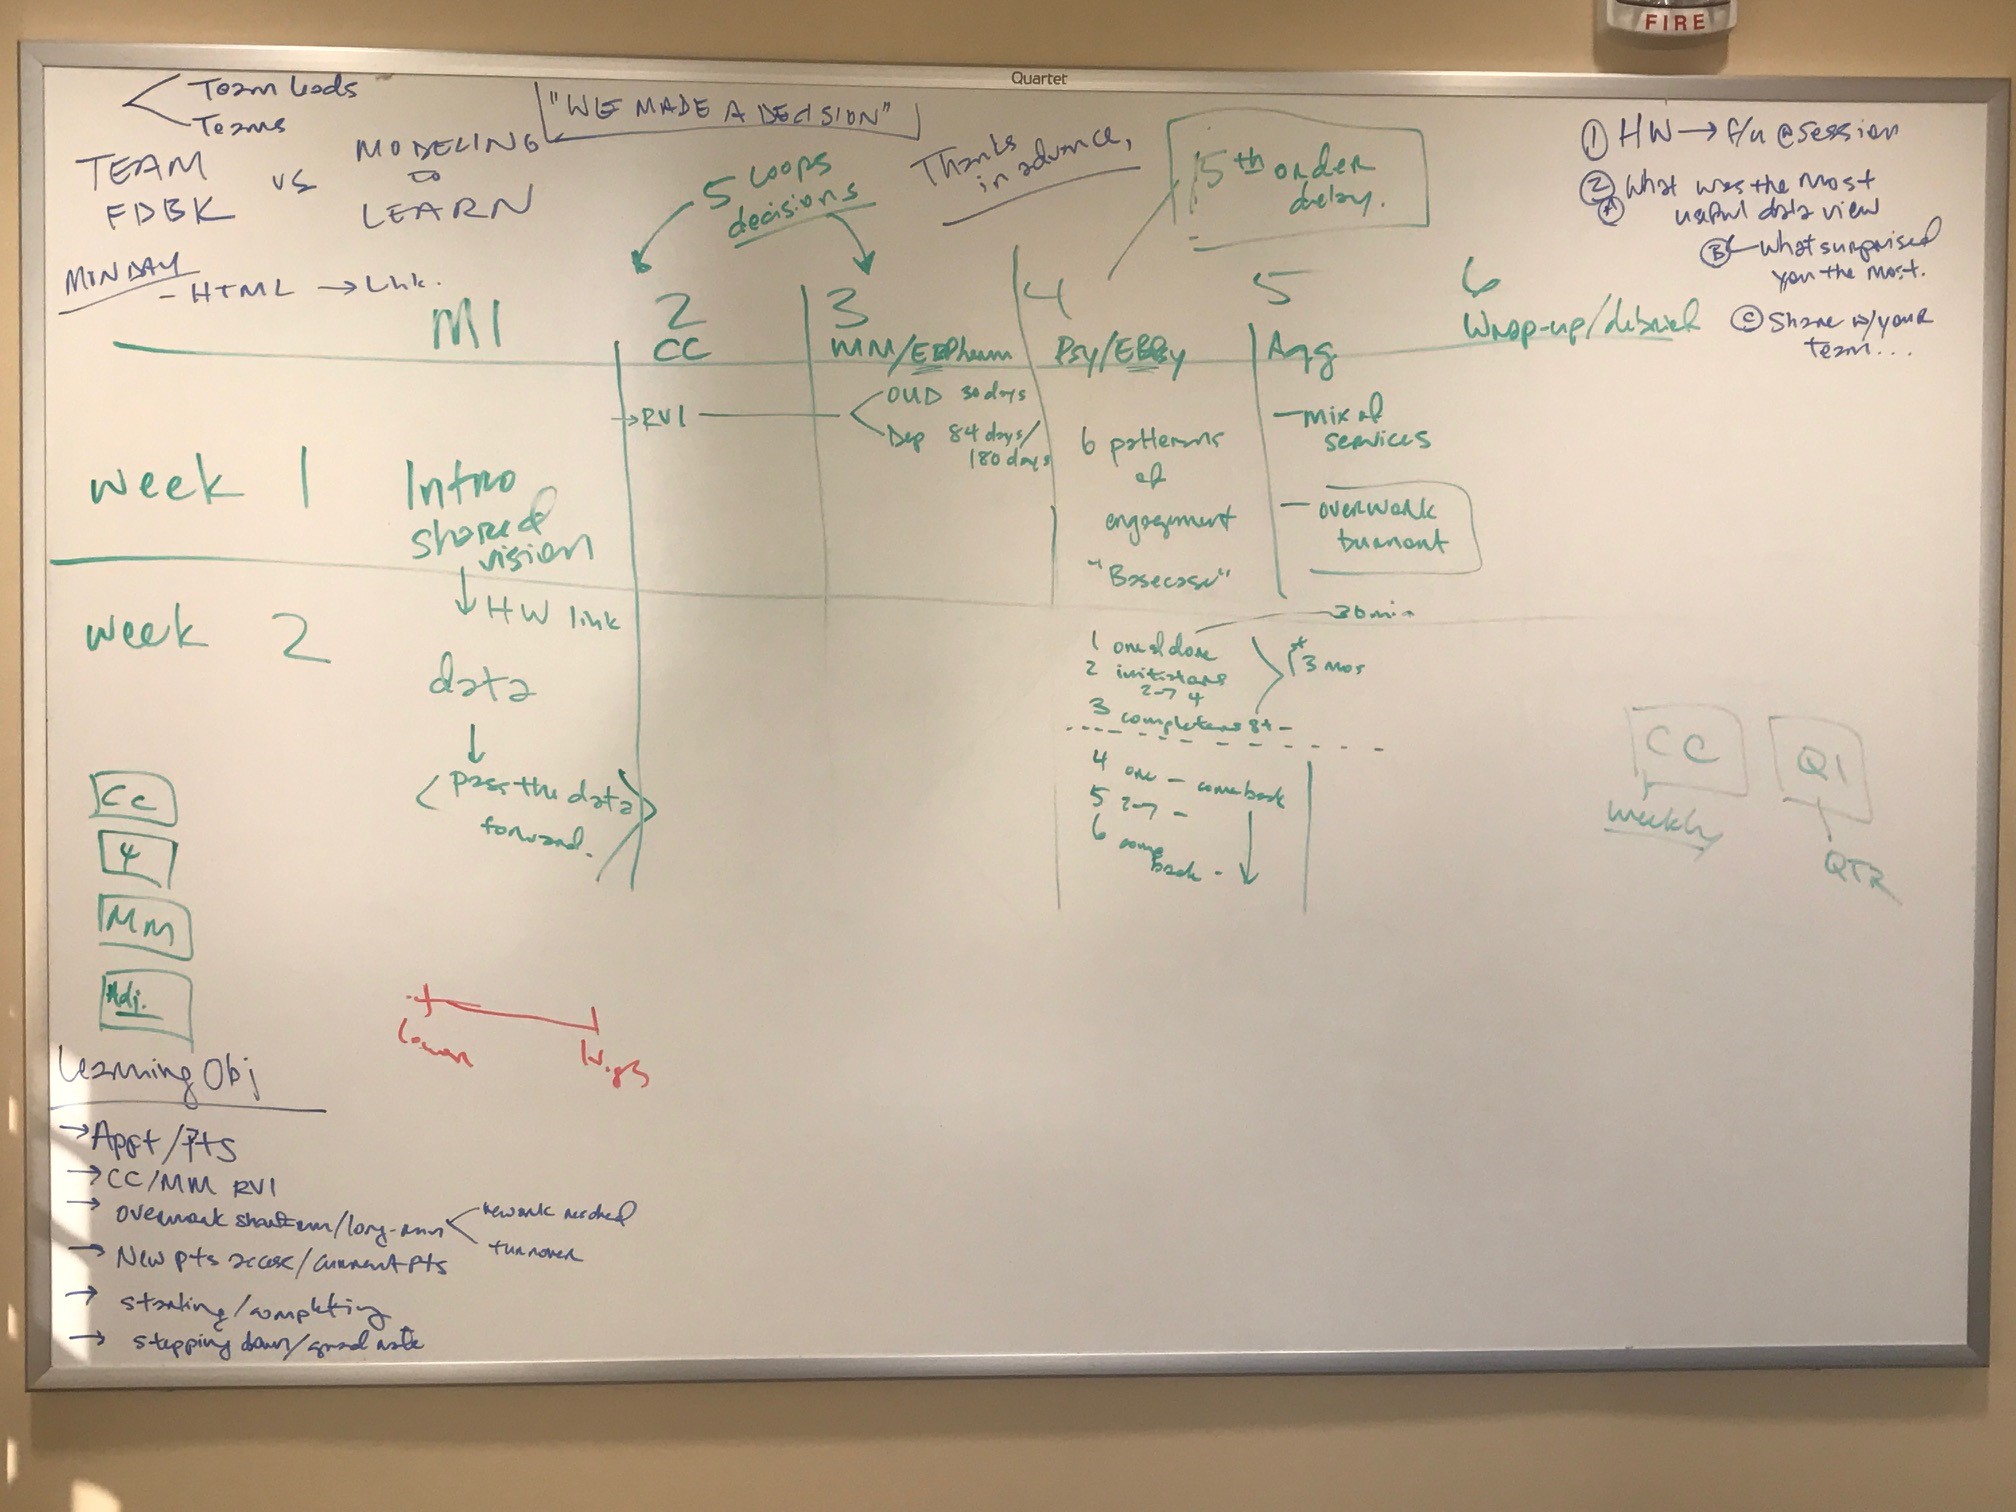 FIRE
Quartet
Team leads
Teams
TEAM
FDBK
vs
MODELING
to
LEARN
"WE MADE A DECISION"
Thanks
in advance,
5 Loops
decisions
5th order
delay.
① HW → f/u @ session
② What was the most
Ⓐ useful data view
Ⓑ What surprised
you the most.
Ⓒ Share w/your
team...
MONDAY
- HTML → Link.
M1
2
CC
3
MM/EBPharm
4
Psy/EBPsy
5
Agg
6
Wrap-up/debrief
week 1
Intro
shared
vision
→ RVI
OUD 30 days
Dep 84 days/
180 days
6 patterns
of
engagement
"Basecase"
- mix of
services
- overwork
burnout
week 2
↓ HW link
data
↓
(pass the data
forward.
30 min
1 one & done
2 initiators
2-7 4
3 completers 8+ -
*3 mos
4 one - come back
5 2-7 -
6 come
back -
CC
weekly
QI
QTR
CC
Ψ
MM
Adj.
lower
high
Learning Obj
→ Appt/Pts
→ CC/MM RVI
→ overwork short term/long-run
rework needed
turnover
→ New pts access/current pts
→ starting/completing
→ stepping down/grad rate